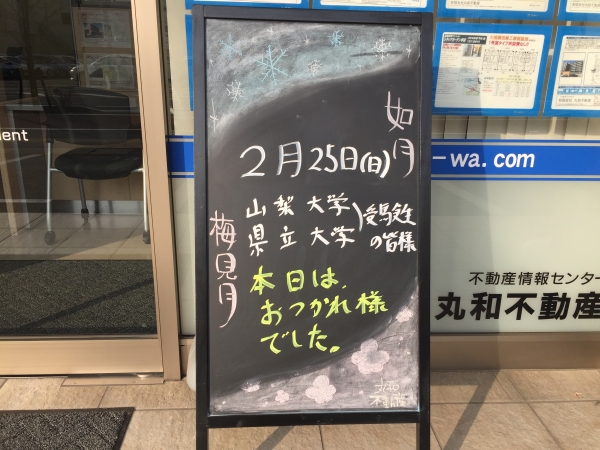 如月
2月25日(日)
山梨大学
県立大学
受験生
の皆様
梅見月
本日は、
おつかれ様
でした。
-wa.com
不動産情報センター
丸和不動産